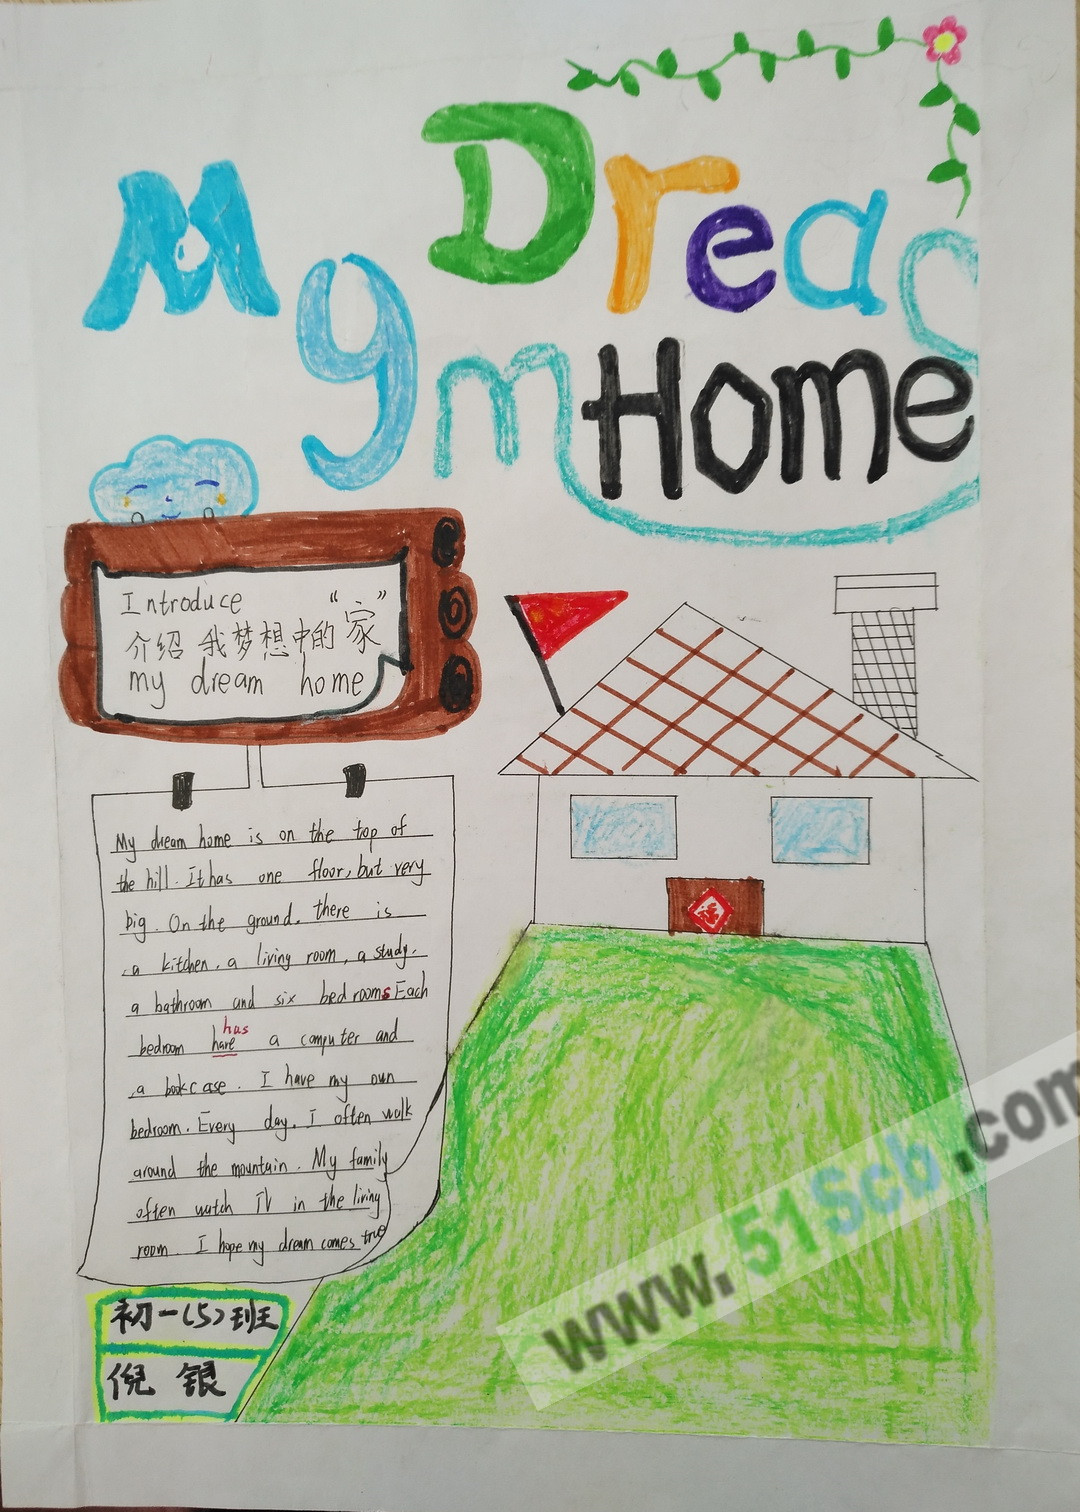 My Dream
Home
Introduce
介绍 我梦想中的“家”
my dream home
My dream home is on the top of
the hill. It has one floor, but very
big. On the ground. there is
a kitchen, a living room, a study.
a bathroom and six bedrooms Each
has
bedroom have a computer and
a bookcase. I have my own
bedroom. Every day. I often walk
around the mountain. My family
often watch TV in the living
room. I hope my dream comes true
福
初一(5)班
倪 银
www.51Scb.com